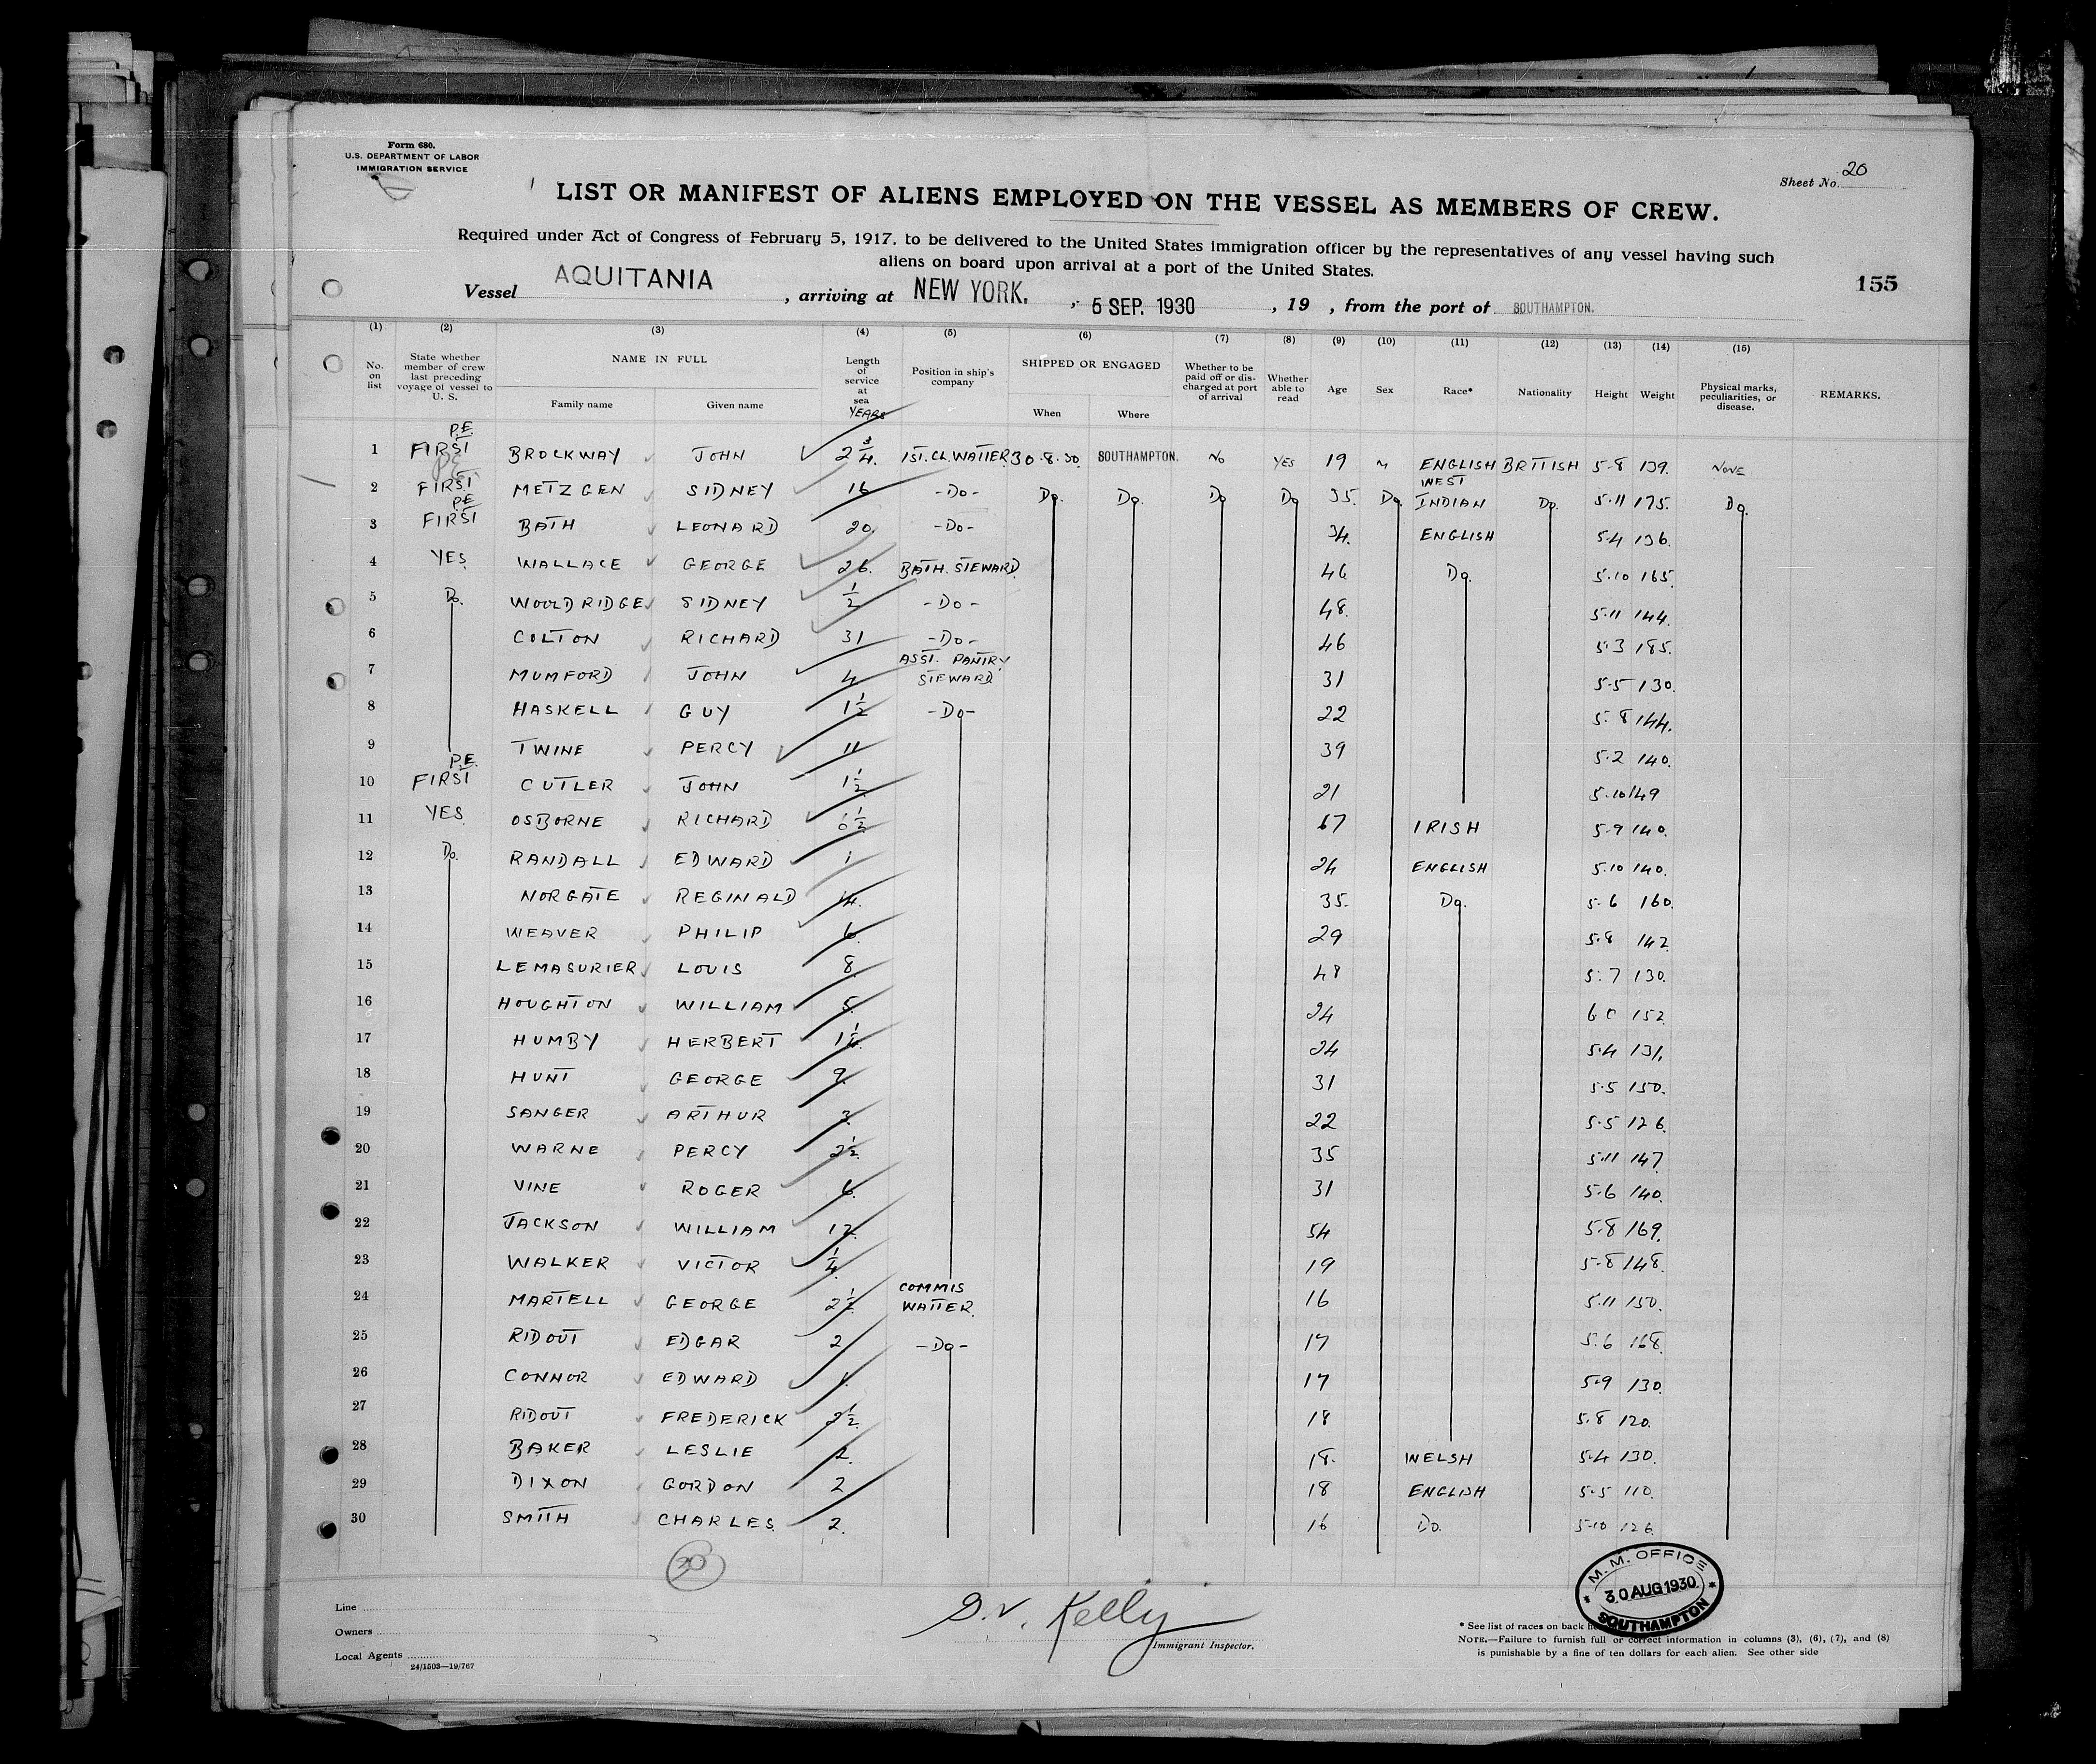 Form 680.
U.S. DEPARTMENT OF LABOR
IMMIGRATION SERVICE
Sheet No. 20
LIST OR MANIFEST OF ALIENS EMPLOYED ON THE VESSEL AS MEMBERS OF CREW.
Required under Act of Congress of February 5, 1917, to be delivered to the United States immigration officer by the representatives of any vessel having such
aliens on board upon arrival at a port of the United States.
155
Vessel AQUITANIA, arriving at NEW YORK., 5 SEP. 1930, 19 , from the port of SOUTHAMPTON.
(1) (2) (3) (4) (5) (6) (7) (8) (9) (10) (11) (12) (13) (14) (15)
No. on list State whether member of crew last preceding voyage of vessel to U. S. NAME IN FULL Family name Given name Length of service at sea YEARS Position in ship's company SHIPPED OR ENGAGED When Where Whether to be paid off or discharged at port of arrival Whether able to read Age Sex Race* Nationality Height Weight Physical marks, peculiarities, or disease. REMARKS.
1 P.E. FIRST BROCKWAY JOHN 2 3/4 1ST. CL. WAITER 30.8.30 SOUTHAMPTON. NO YES 19 M ENGLISH BRITISH 5-8 139. NONE
2 P.E. FIRST METZGEN SIDNEY 16 -DO- DO. DO. DO DO 35. DO. WEST INDIAN DO. 5-11 175. DO.
3 P.E. FIRST BATH LEONARD 20 -DO- 34. ENGLISH 5-4 136.
4 YES WALLACE GEORGE 26. BATH. STEWARD. 46 DO. 5-10 165.
5 DO. WOOLDRIDGE SIDNEY 1/2 -DO- 48. 5-11 144.
6 COLTON RICHARD 31 -DO- 46 5-3 185.
7 MUMFORD JOHN 4 ASST. PANTRY STEWARD 31 5-5 130.
8 HASKELL GUY 1 1/2 -DO- 22 5-8 144.
9 TWINE PERCY 11 39 5-2 140.
10 P.E. FIRST CUTLER JOHN 1 1/2 21 5-10 149
11 YES OSBORNE RICHARD 6 1/2 67 IRISH 5-9 140.
12 DO. RANDALL EDWARD 1 24 ENGLISH 5-10 140.
13 NORGATE REGINALD 14. 35. DO. 5-6 160.
14 WEAVER PHILIP 6. 29 5-8 142
15 LEMASURIER LOUIS 8. 48 5-7 130.
16 HOUGHTON WILLIAM 5. 24 6 0 152
17 HUMBY HERBERT 24 5-4 131.
18 HUNT GEORGE 9. 31 5-5 150.
19 SANGER ARTHUR 3. 22 5-5 126.
20 WARNE PERCY 2 1/2 35 5-11 147
21 VINE ROGER 6. 31 5-6 140.
22 JACKSON WILLIAM 12. 54 5-8 169.
23 WALKER VICTOR 1/4. 19 5-8 148.
24 MARTELL GEORGE 2 1/2 COMMIS WAITER. 16 5-11 150.
25 RIDOUT EDGAR 2 -DO- 17 5-6 168.
26 CONNOR EDWARD 1. 17 5-9 130.
27 RIDOUT FREDERICK 2 1/2. 18 5-8 120.
28 BAKER LESLIE 2. 18. WELSH 5-4 130.
29 DIXON GORDON 2 18 ENGLISH 5-5 110.
30 SMITH CHARLES. 2. 16 DO. 5-10 126.
30
M. M. OFFICE
30 AUG 1930
SOUTHAMPTON
Line
Owners
Local Agents
24/1503—19/767
Kelly
Immigrant Inspector.
* See list of races on back
NOTE.—Failure to furnish full or correct information in columns (3), (6), (7), and (8)
is punishable by a fine of ten dollars for each alien. See other side